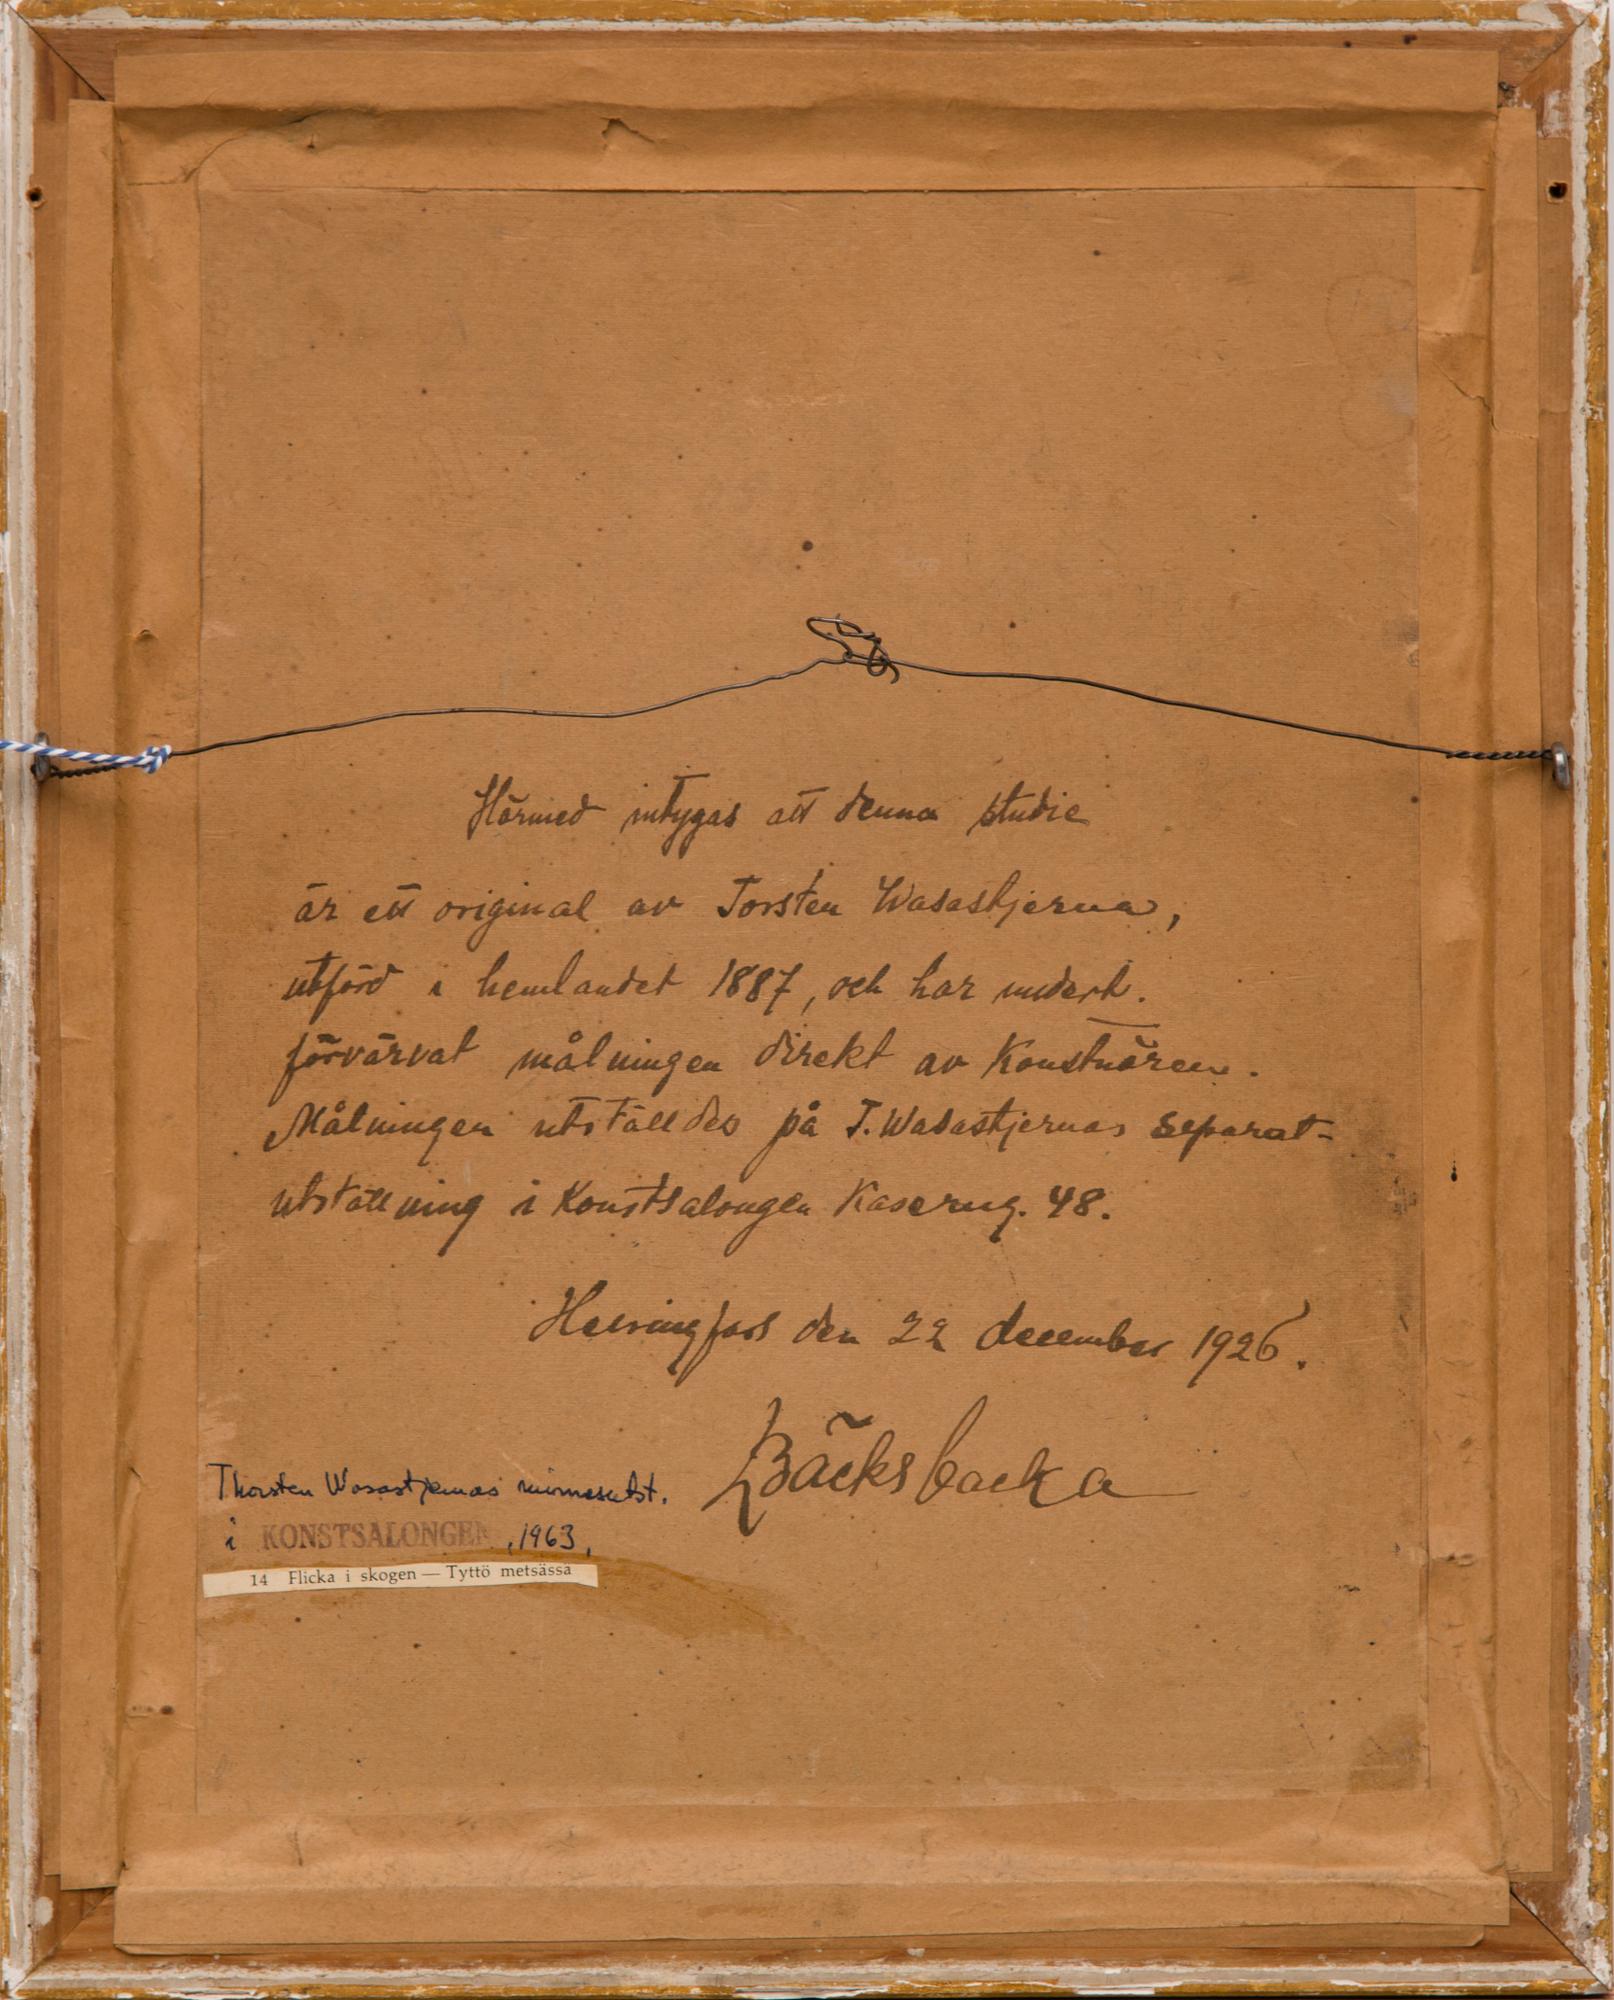 Härmed intygas att denna studie
är ett original av Torsten Wasastjerna,
utförd i hemlandet 1887, och har undert.
förvärvat målningen direkt av Konstnären.
Målningen utställdes på T. Wasastjernas separat-
utställning i Konstsalongen Kaserng. 48.
Helsingfors den 22 december 1926.
Bäcksbacka
Thorsten Wasastjernas minnesutst.
i KONSTSALONGEN, 1963,
14 Flicka i skogen — Tyttö metsässa